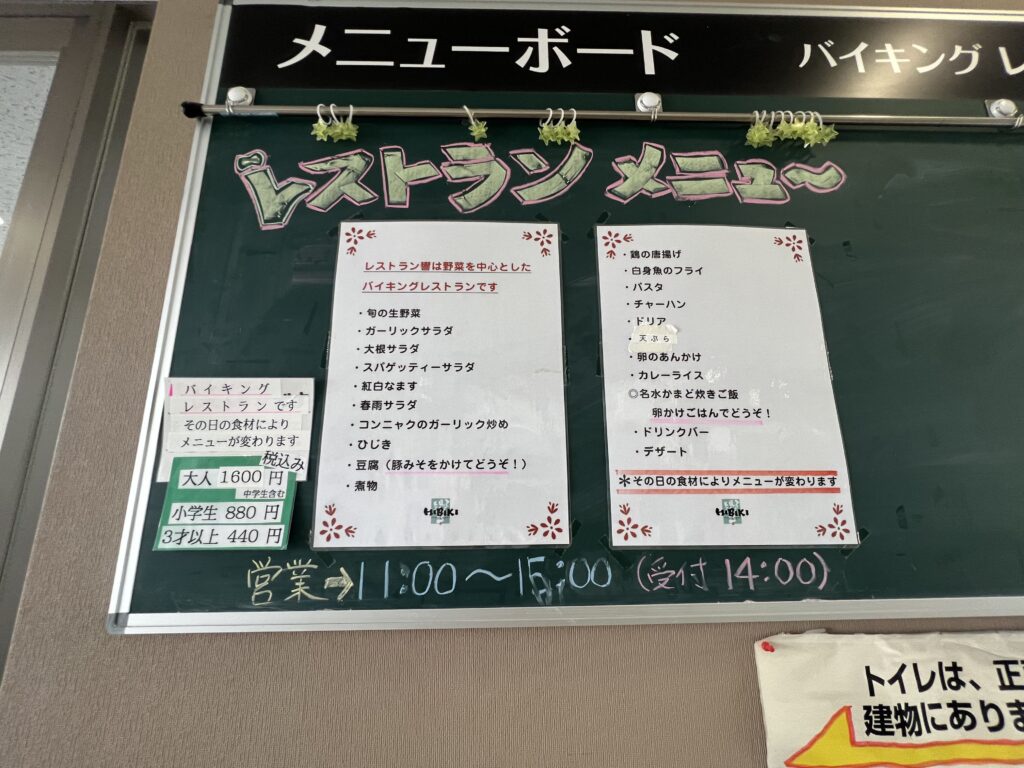 メニューボード
バイキング レ
レストラン メニュ～
レストラン響は野菜を中心とした
バイキングレストランです
・旬の生野菜
・ガーリックサラダ
・大根サラダ
・スパゲッティーサラダ
・紅白なます
・春雨サラダ
・コンニャクのガーリック炒め
・ひじき
・豆腐（豚みそをかけてどうぞ！）
・煮物
HiBiKi
・鶏の唐揚げ
・白身魚のフライ
・パスタ
・チャーハン
・ドリア
・天ぷら
・卵のあんかけ
・カレーライス
◎名水かまど炊きご飯
卵かけごはんでどうぞ！
・ドリンクバー
・デザート
＊その日の食材によりメニューが変わります
HiBiKi
バイキング
レストランです
その日の食材により
メニューが変わります
税込み
大人 1600 円
中学生含む
小学生 880 円
3才以上 440 円
営業→11:00～15:00（受付 14:00）
トイレは、正
建物にありま